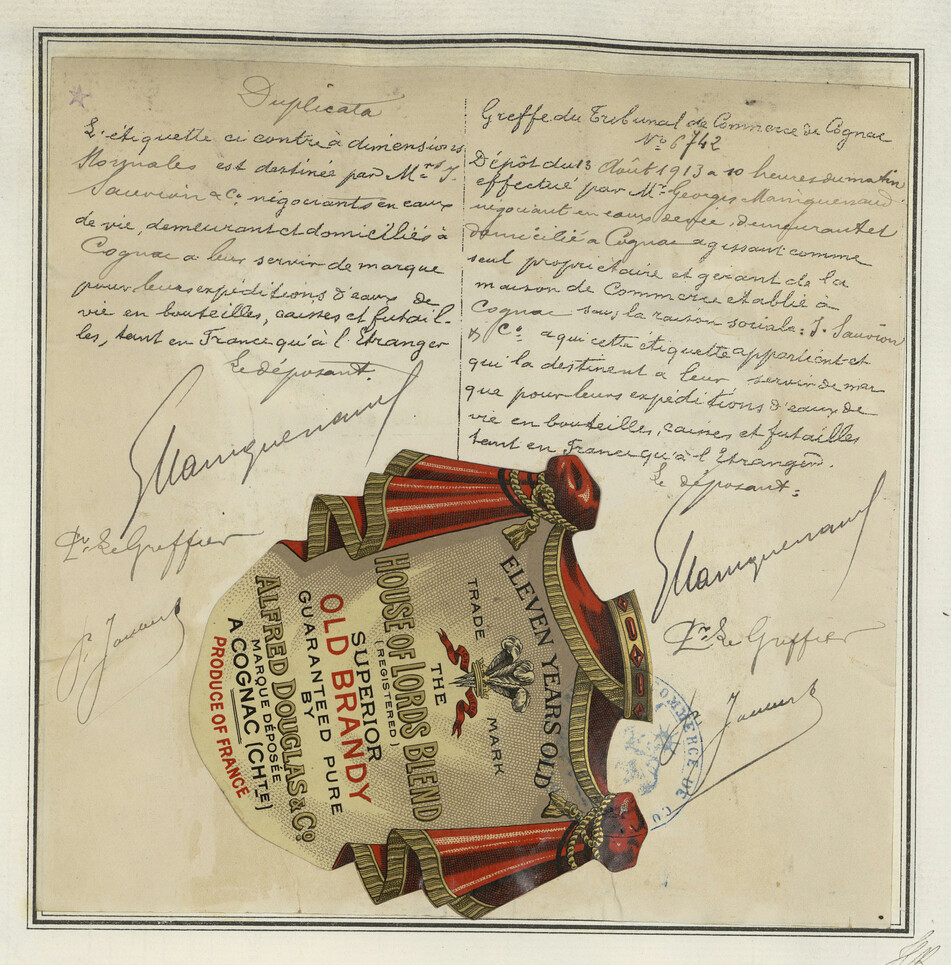 Duplicata
L'étiquette ci contre à dimensions
Normales est destinée par Mrs J.
Sauvion & Co. négociants en eaux
de vie, demeurant et domiciliés à
Cognac a leur servir de marque
pour leurs expéditions d'eaux de
vie en bouteilles, caisses et futail-
les, tant en France qu'à l'Etranger
Le déposant.
Pr Le Greffier
Greffe du Tribunal de Commerce de Cognac
No 6742
Dépôt du 13 Août 1913 a 10 heures du matin
effectué par Mr Georges
négociant en eaux de vie, demeurant et
domicilié a Cognac agissant comme
seul propriétaire et gérant de la
maison de Commerce établie à
Cognac sous la raison sociale: J. Sauvion
& Co. a qui cette étiquette appartient et
qui la destinent a leur servir de mar
que pour leurs expéditions d'eaux de
vie en bouteilles, caisses et futailles
tant en France qu'à l'Etranger.
Le déposant:
Pr Le Greffier
ELEVEN YEARS OLD
TRADE MARK
THE
HOUSE OF LORDS BLEND
(REGISTERED)
SUPERIOR
OLD BRANDY
GUARANTEED PURE
BY
ALFRED DOUGLAS & Co
MARQUE DÉPOSÉE
A COGNAC (CHTE)
PRODUCE OF FRANCE
COMMERCE DE